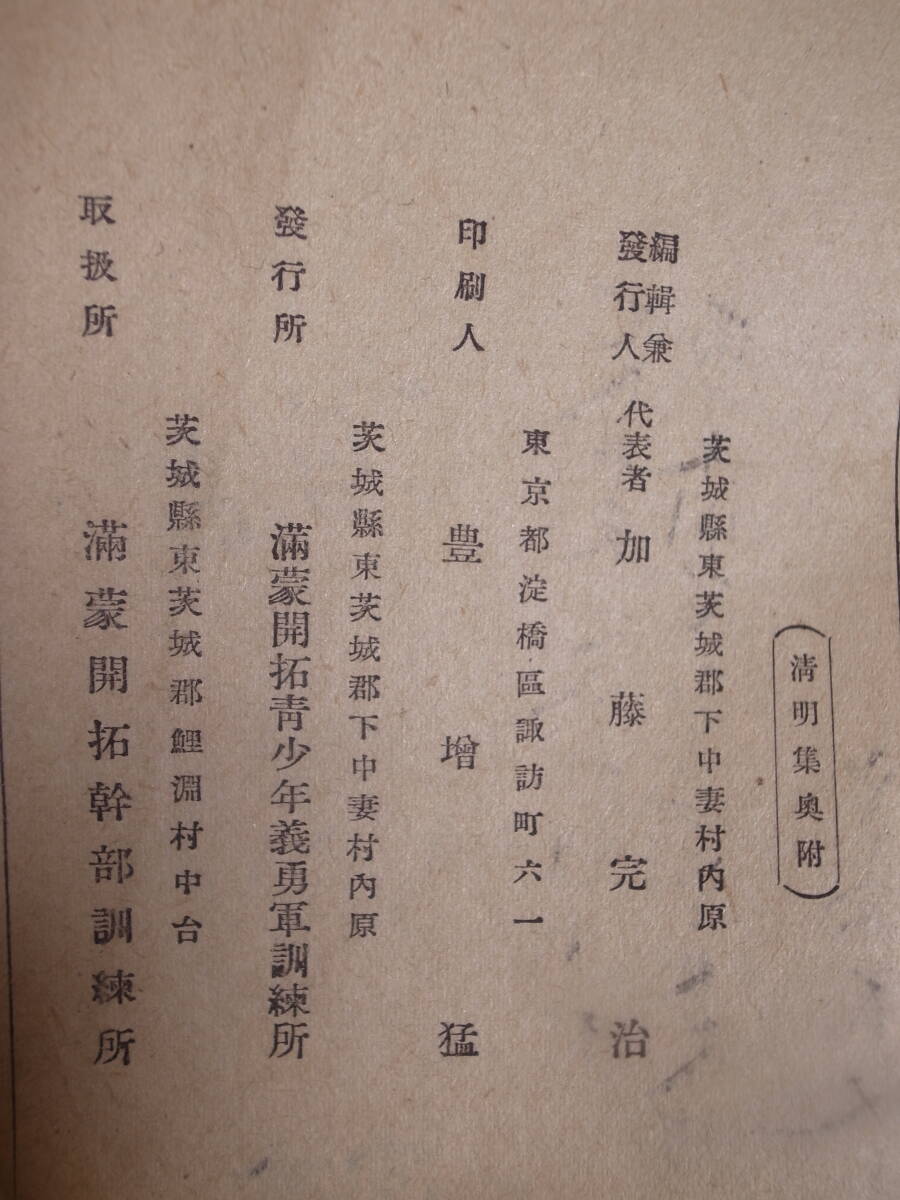 （淸明集奧附）
茨城縣東茨城郡下中妻村內原
編輯兼
發行人 代表者 加藤完治
東京都淀橋區諏訪町六一
印刷人 豊增猛
茨城縣東茨城郡下中妻村內原
發行所 滿蒙開拓靑少年義勇軍訓練所
茨城縣東茨城郡鯉淵村中台
取扱所 滿蒙開拓幹部訓練所